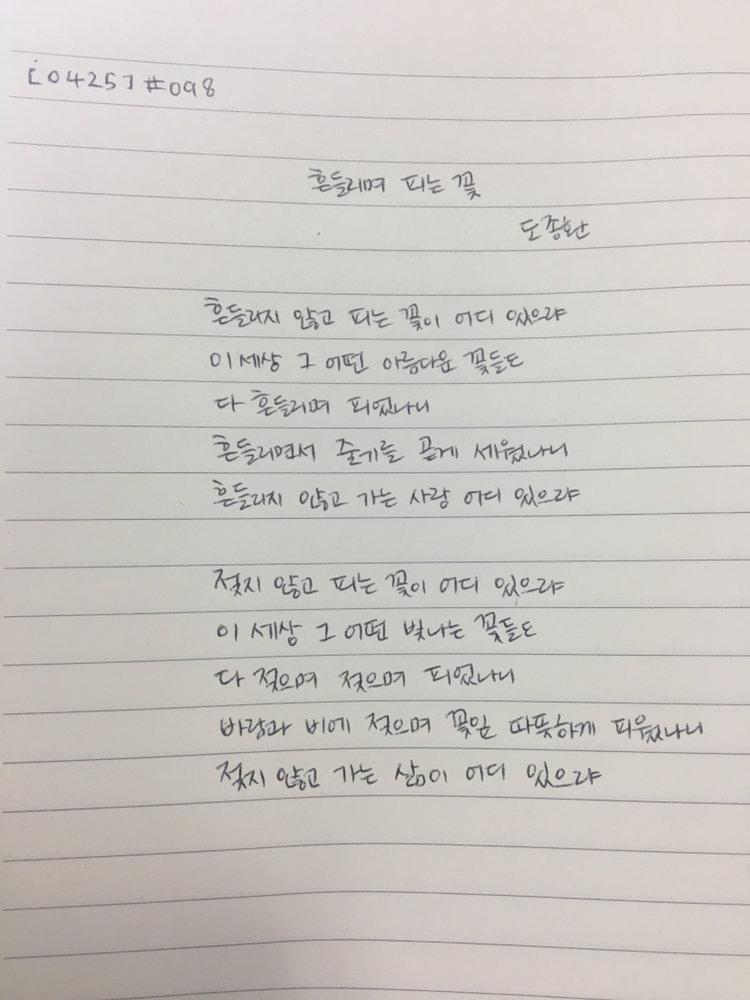 [0425] #098
흔들리며 피는 꽃
도종환
흔들리지 않고 피는 꽃이 어디 있으랴
이 세상 그 어떤 아름다운 꽃들도
다 흔들리며 피었나니
흔들리면서 줄기를 곧게 세웠나니
흔들리지 않고 가는 사랑 어디 있으랴
젖지 않고 피는 꽃이 어디 있으랴
이 세상 그 어떤 빛나는 꽃들도
다 젖으며 젖으며 피었나니
바람과 비에 젖으며 꽃잎 따뜻하게 피웠나니
젖지 않고 가는 삶이 어디 있으랴